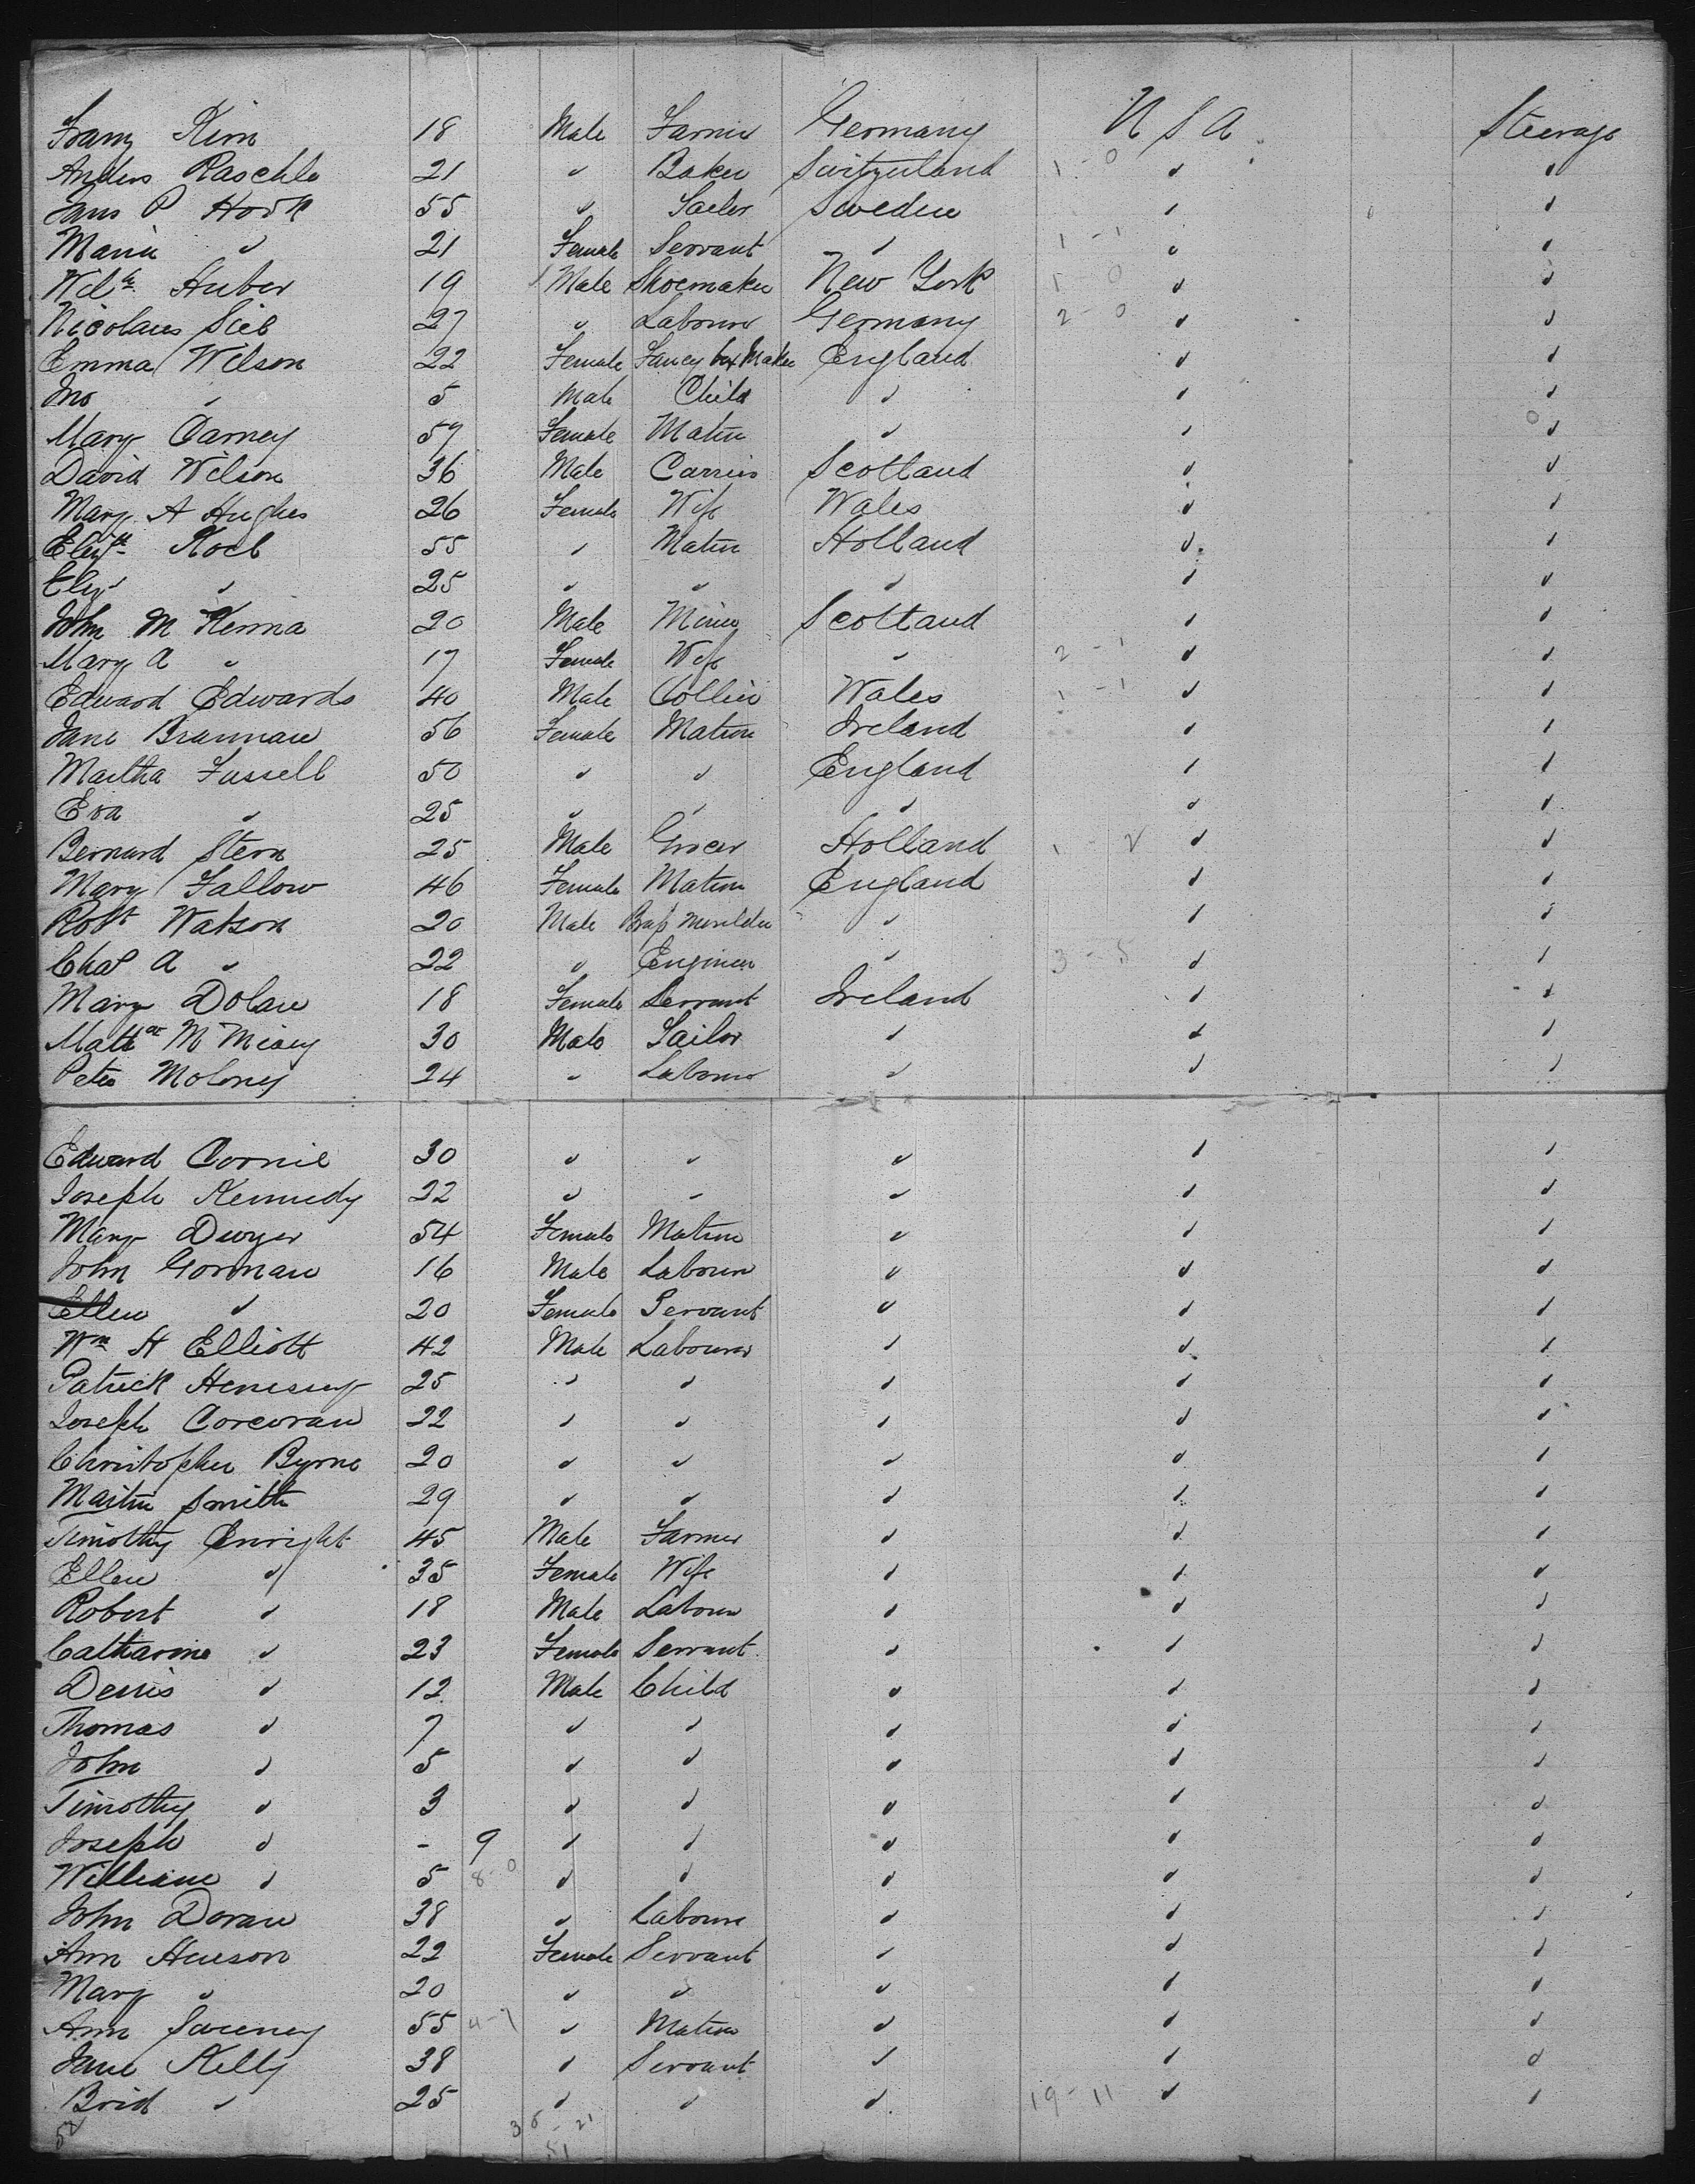 Franz Kirn 18 Male Farmer Germany U S A Steerage
Anders Raschle 21 " Baker Switzerland 1 - 0 " "
Jans P Hook 55 " Sailor Sweden " "
Maria " 21 Female Servant " 1 - 1 " "
Wilh Huber 19 Male Shoemaker New York 1 0 " "
Nicolaus Sieb 27 " Labourer Germany 2 - 0 " "
Emma Wilson 22 Female Fancy box Maker England " "
Jno " 5 Male Child " " "
Mary Carney 57 Female Matron " " "
David Wilson 36 Male Carrier Scotland " "
Mary A Hughes 26 Female Wife Wales " "
Elizth Koch 55 " Matron Holland " "
Eliz " 25 " " " " "
John McKenna 20 Male Miner Scotland " "
Mary A " 17 Female Wife " 2 - 1 " "
Edward Edwards 40 Male Collier Wales 1 - 1 " "
Jane Brannan 56 Female Matron Ireland " "
Martha Fussell 50 " " England " "
Eva " 25 " " " " "
Bernard Stern 25 Male Grocer Holland 1 - 2 " "
Mary Fallow 46 Female Matron England " "
Robt Watson 20 Male Brass Moulder " " "
Chas A " 22 " Engineer " 3 - 5 " "
Mary Dolan 18 Female Servant Ireland " "
Mattw 30 Male Sailor " " "
Peter Moloney 24 " Labourer " " "
Edward 30 " " " " "
Joseph Kennedy 22 " " " " "
Mary Dwyer 54 Female Matron " " "
John Gorman 16 Male Labourer " " "
Ellen " 20 Female Servant " " "
Wm H Elliott 42 Male Labourer " " "
Patrick Henessey 25 " " " " "
Joseph Corcoran 22 " " " " "
Christopher Byrne 20 " " " " "
Martin Smith 29 " " " " "
Timothy Enright 45 Male Farmer " " "
Ellen " 35 Female Wife " " "
Robert " 18 Male Labourer " " "
Catharine " 23 Female Servant " " "
Denis " 12 Male Child " " "
Thomas " 7 " " " " "
John " 5 " " " " "
Timothy " 3 " " " " "
Joseph " - 9 " " " " "
William " 5 8-0 " " " " "
John Doran 38 " Labourer " " "
Ann Henson 22 Female Servant " " "
Mary " 20 " " " " "
Ann Sweeney 55 4-7 " Matron " " "
Jane Kelly 38 " Servant " " "
Brid " 25 " " " 19 - 11 " "
52 30 - 21
51